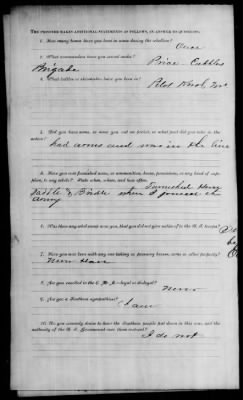 THE PRISONER MAKES ADDITIONAL STATEMENTS AS FOLLOWS, IN ANSWER TO QUESTIONS:
1. How many times have you been in arms during the rebellion?
Once
2. What commanders have you served under?
Price Cabbles
Brigade
3. What battles or skirmishes have you been in?
Pilot Knob,
5. Did you have arms, or were you out on picket, or what part did you take in the
action?
had arms and was in the line
4. Have you ever furnished arms, or ammunition, horse, provisions, or any kind of sup-
plies, to any rebels? State when, where, and how often.
Furnished Horse
Saddle & Bridle when I joined the
Army
6. Was there any rebel camp near you, that you did not give notice of to the U. S. troops?
7. Have you ever been with any one taking or pressing horses, arms or other property?
Never Have
8. Are you enrolled in the E. M. M.—loyal or disloyal?
Never
9. Are you a Southern sympathizer?
I am
10. Do you sincerely desire to have the Southern people put down in this war, and the
authority of the U. S. Government over them restored?
I do not